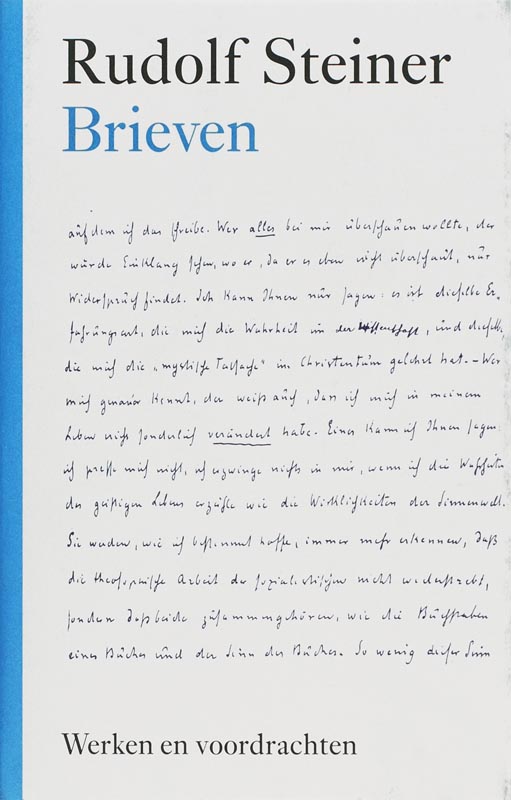 Rudolf Steiner
Brieven
auf dem ich das schreibe. Wer alles bei mir überschauen wollte, der
würde Einklang sehen, wo er, da er es eben nicht überschaut, nur
Widerspruch findet. Ich kann Ihnen nur sagen: es ist dieselbe Er-
fahrungsart, die mich die Wahrheit in der Wissenschaft, und dieselbe,
die mich die „mystische Tatsache“ im Christentum gelehrt hat. – Wer
mich genauer kennt, der weiß auch, dass ich mich in meinem
Leben nicht sonderlich verändert habe. Eines kann ich Ihnen sagen:
ich presse mich nicht, ich erzwinge nichts in mir, wenn ich die Wahrheiten
des geistigen Lebens erzähle wie die Wirklichkeiten der Sinnenwelt.
Sie werden, wie ich bestimmt hoffe, immer mehr erkennen, daß
die theosophische Arbeit der sozialistischen nicht widerstrebt,
sondern daß beide zusammengehören, wie die Buchstaben
eines Buches und der Sinn des Buches. So wenig dieser Sinn
Werken en voordrachten